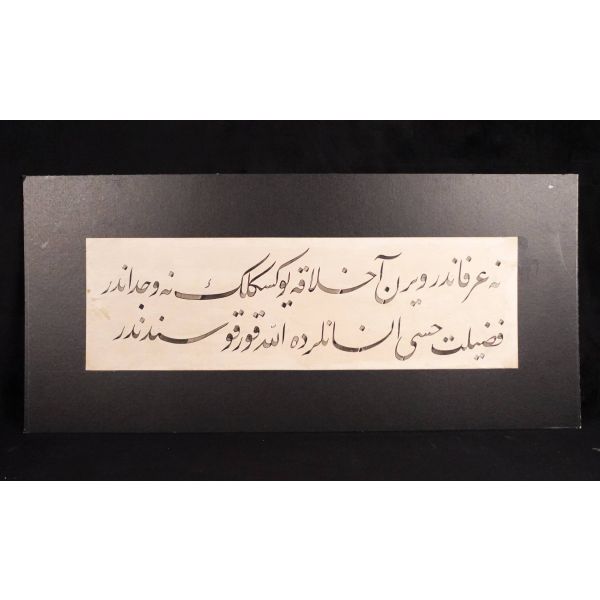 نه عرفاندر ويرن آخلاقه يوكسكلك نه وجداندر
فضيلت حسى انسانلرده الله قورقوسندندر